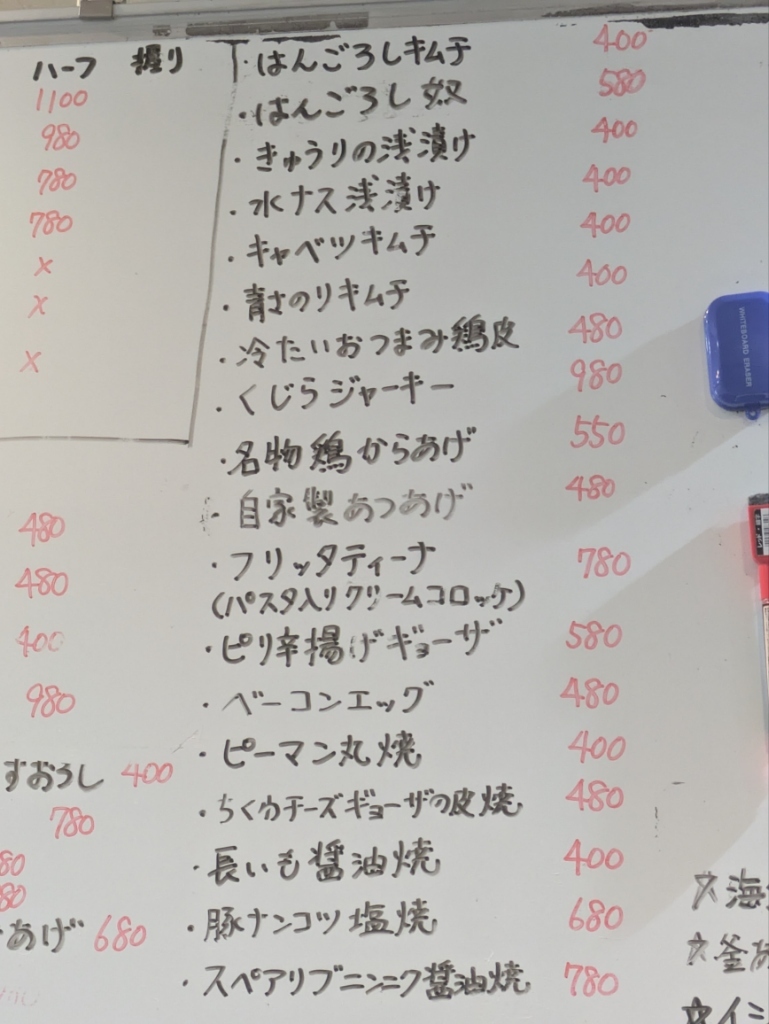 ハーフ 握り
1100
980
780
780
×
×
×
480
480
400
980
すおろし 400
780
80
80
あげ 680
・はんごろしキムチ 400
・はんごろし奴 580
・きゅうりの浅漬け 400
・水ナス浅漬け 400
・キャベツキムチ 400
・青さのりキムチ 400
・冷たいおつまみ鶏皮 480
・くじらジャーキー 980
・名物鶏からあげ 550
・自家製あつあげ 480
・フリッタティーナ 780
(パスタ入りクリームコロッケ)
・ピリ辛揚げギョーザ 580
・ベーコンエッグ 480
・ピーマン丸焼 400
・ちくわチーズギョーザの皮焼 480
・長いも醤油焼 400
・豚ナンコツ塩焼 680
・スペアリブニンニク醤油焼 780
WHITEBOARD ERASER
☆海
☆釜
☆イ